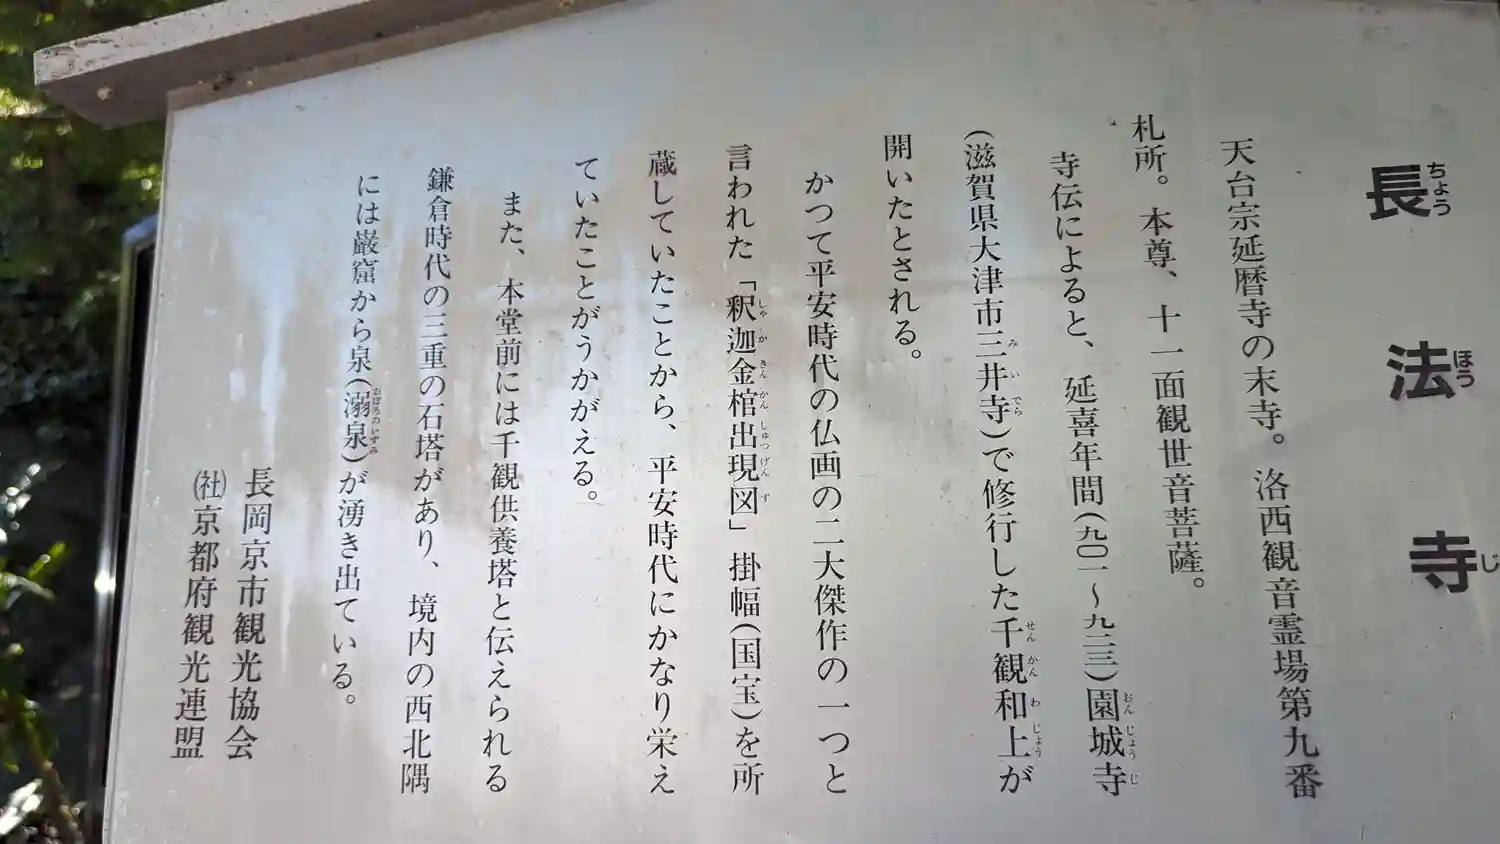 長法寺
ちょう ほう じ
天台宗延暦寺の末寺。洛西観音霊場第九番
札所。本尊、十一面観世音菩薩。
寺伝によると、延喜年間(九〇一～九二三)園城寺
おんじょうじ
(滋賀県大津市三井寺)で修行した千観和上が
みいでら せんかんわじょう
開いたとされる。
かつて平安時代の仏画の二大傑作の一つと
言われた「釈迦金棺出現図」掛幅(国宝)を所
しゃかきんかんしゅつげんず
蔵していたことから、平安時代にかなり栄え
ていたことがうかがえる。
また、本堂前には千観供養塔と伝えられる
鎌倉時代の三重の石塔があり、境内の西北隅
には巌窟から泉(溺泉)が湧き出ている。
おぼろのいずみ
長岡京市観光協会
㈳京都府観光連盟